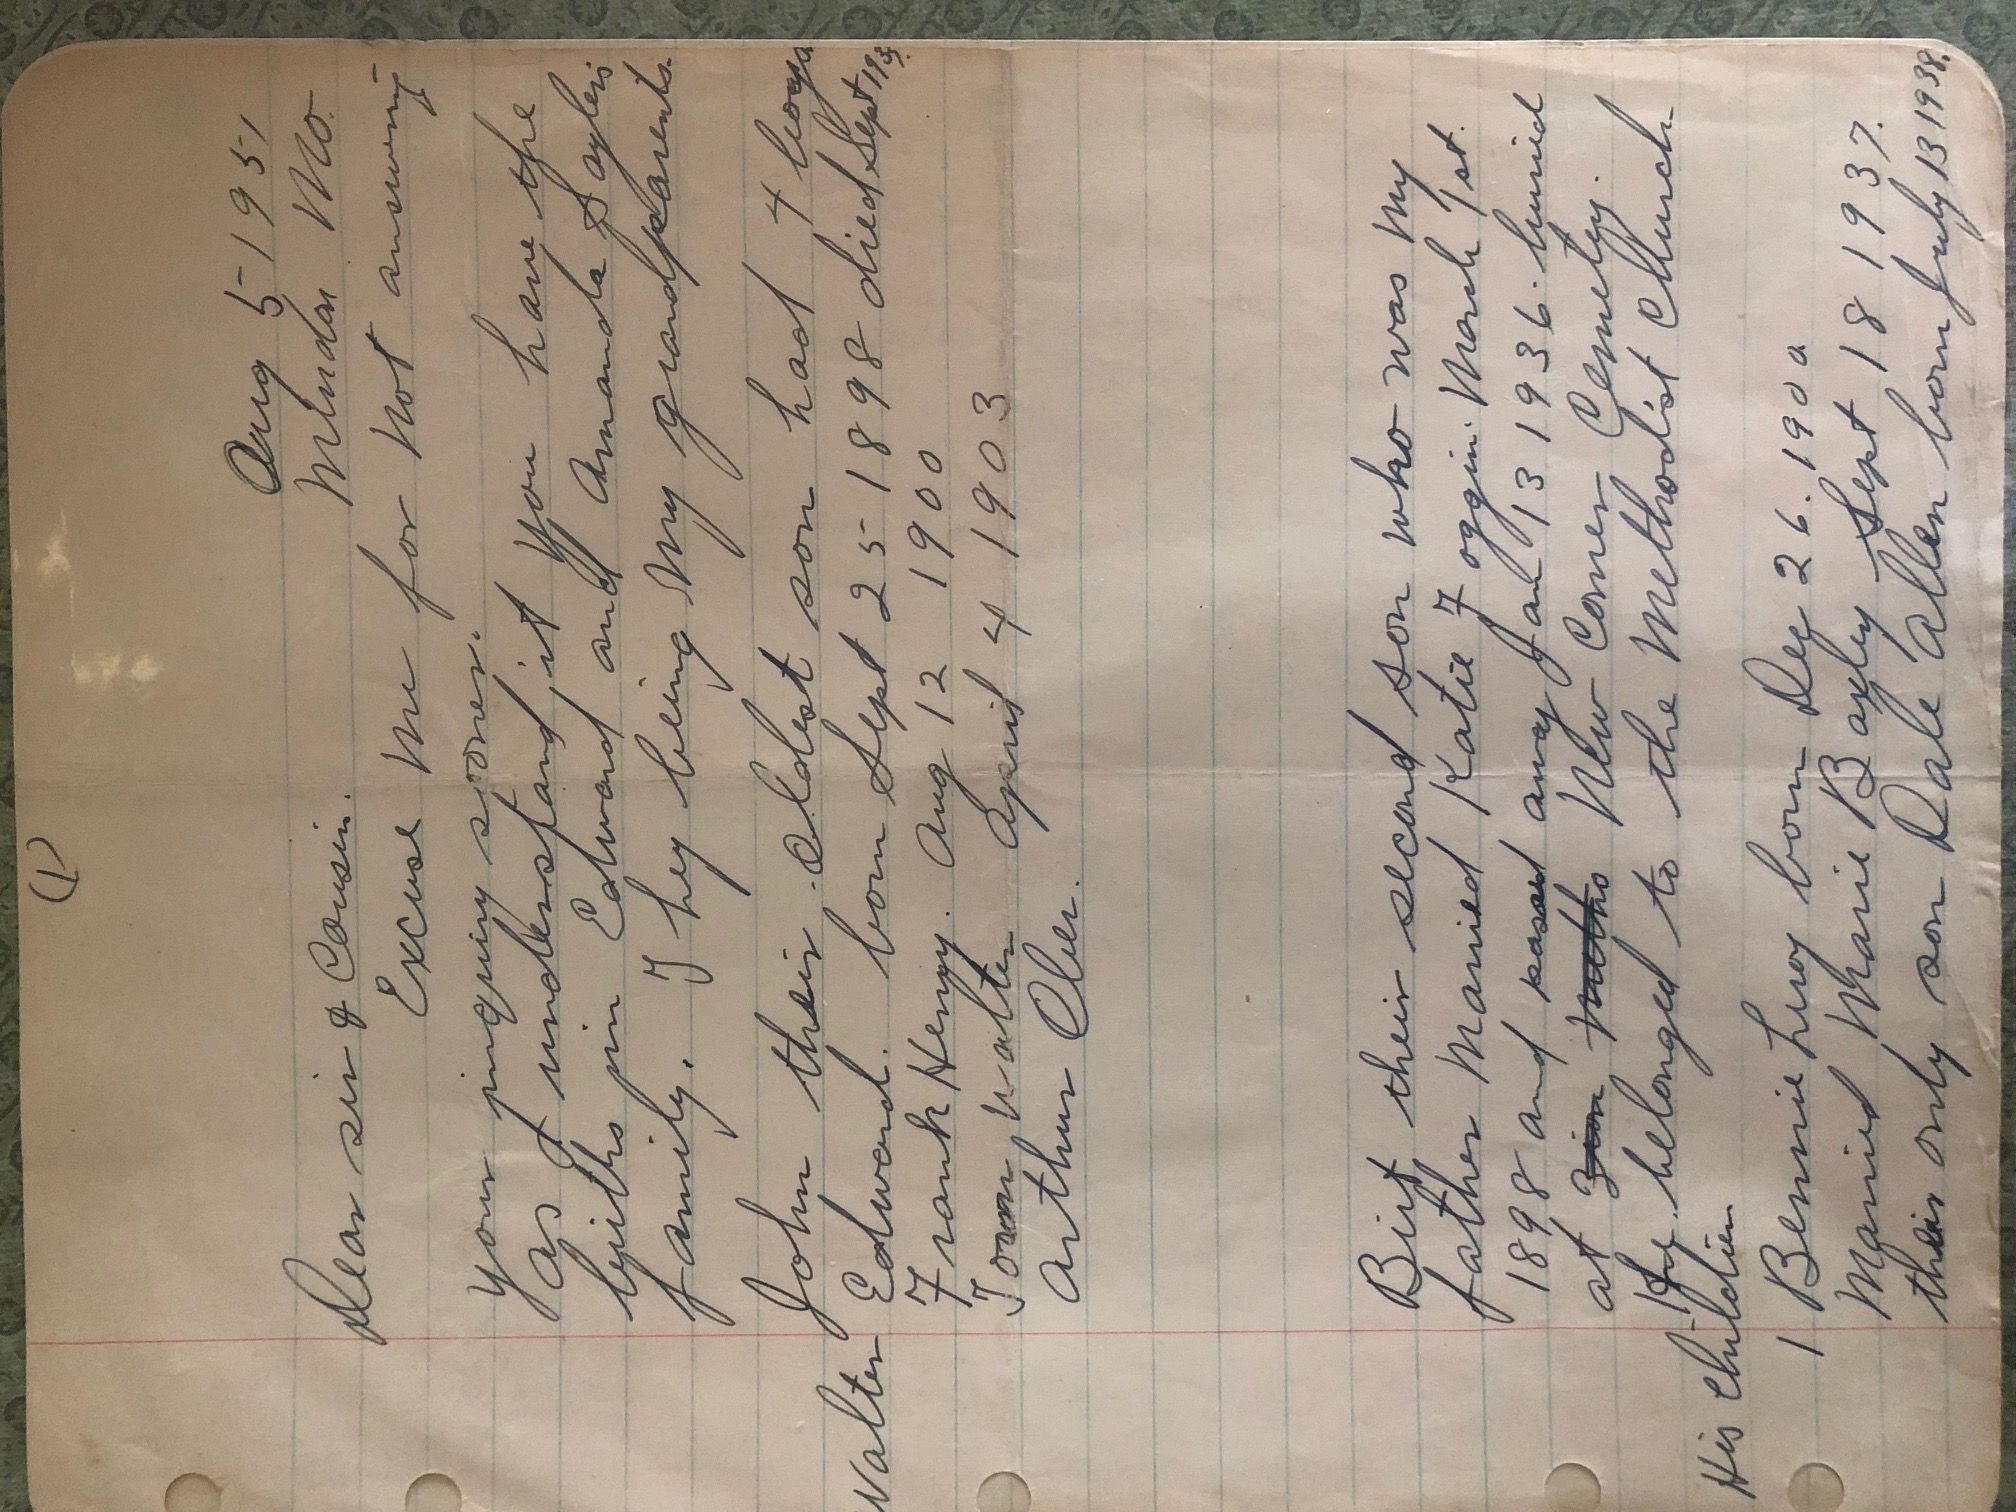 (1)
Aug 5-1951
Mendon Mo.
Dear sir & Cousin.
Excuse me for not answering
your inquiry sooner.
as I understand, it you have the
births in Edward and Amanda Sayler's
family. They being my grandparents.
John their Oldest son had 4 boys
Walter Edward. born Sept 25-1898 died Sept
Frank Henry. Aug 12 1900
Tom Walter April 4 1903
Arthur Olen.
Birt their second son who was my
father married Katie Foggin. March 1st.
1898 and passed away Jan 13 1936. buried
at New Comer Cemetery.
He belonged to the Methodist Church
His Children
1 Bennie Leroy born Dec 26. 1900
Married Marie Baxley Sept 18 1937.
their only son Dale Allen born July 13 1938.